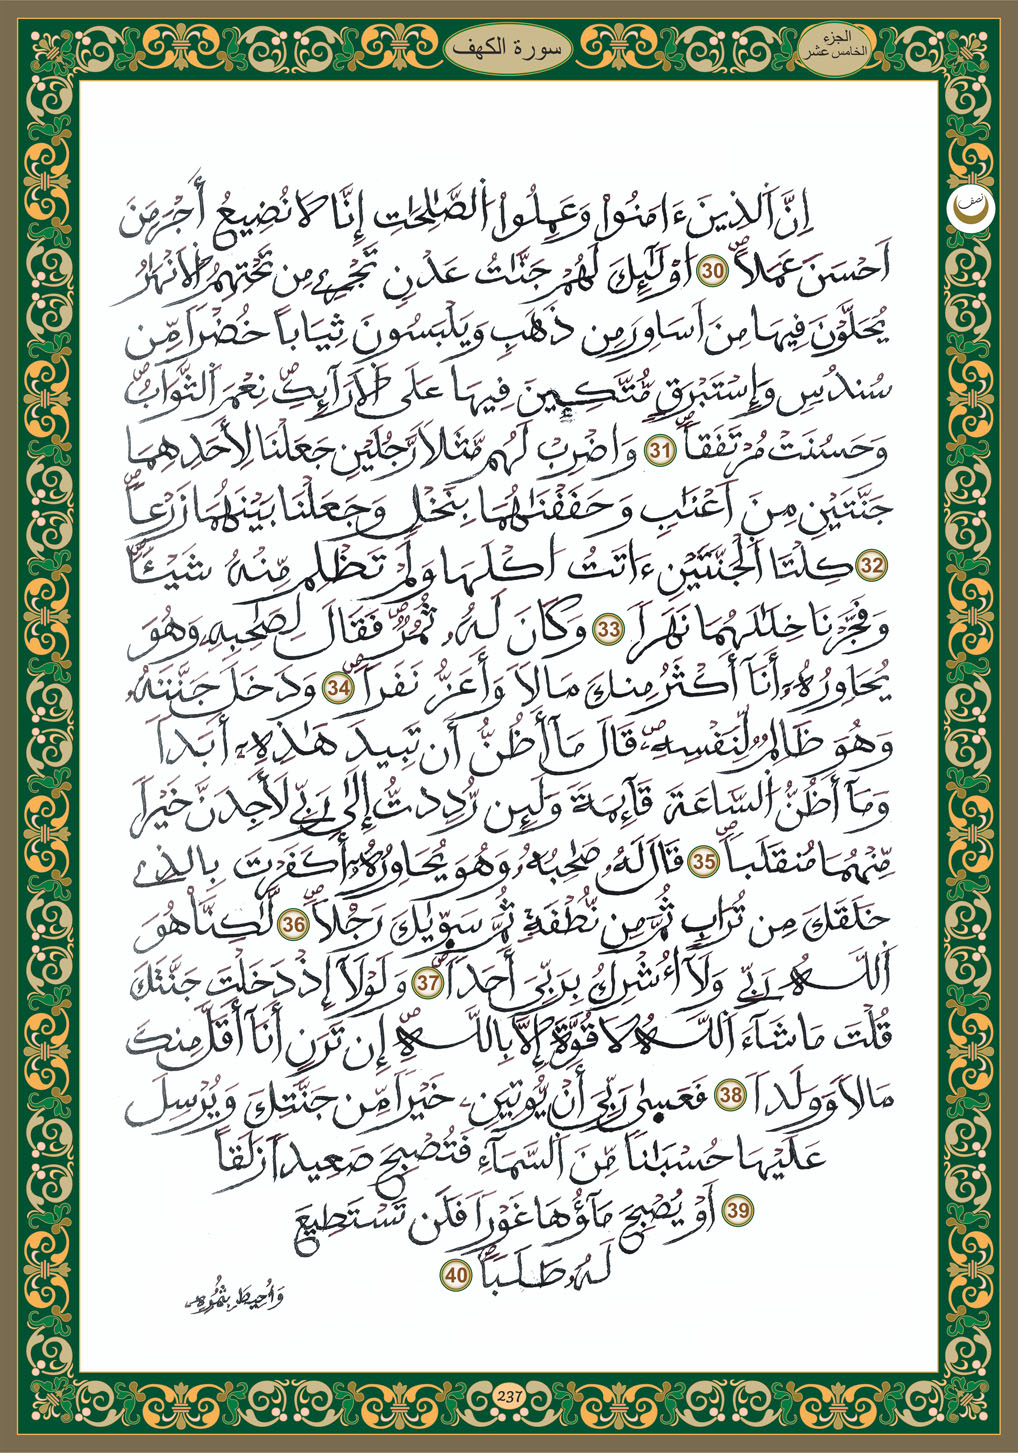 سورة الكهف
الجزء
الخامس عشر
نصف
إِنَّ اَلذِينَ ءَامَنُواْ وَعَمِلُواْ اُلصَّٰلِحَٰتِ إِنَّا لَا نُضِيعُ أَجْرَ مَنَ
اَحْسَنَ عَمَلاًۖ 30 ا۟وْلَٰٓئِكَ لَهُمْ جَنَّٰتُ عَدْنٖ تَجْرِے مِن تَحْتِهِمُ اُلَانْهَٰرُ
يُحَلَّوْنَ فِيهَا مِنَ اَسَاوِرَ مِن ذَهَبٖ وَيَلْبَسُونَ ثِيَاباً خُضْراٗ مِّن
سُندُسٖ وَإِسْتَبْرَقٖ مُّتَّكِـِٕينَ فِيهَا عَلَى اَلَارَآئِكِۖ نِعْمَ اَلثَّوَابُۖ
وَحَسُنَتْ مُرْتَفَقاٗۖ 31 وَاضْرِبْ لَهُم مَّثَلاٗ رَّجُلَيْنِ جَعَلْنَا لِأَحَدِهِمَا
جَنَّتَيْنِ مِنَ اَعْنَٰبٖ وَحَفَفْنَٰهُمَا بِنَخْلٖ وَجَعَلْنَا بَيْنَهُمَا زَرْعاٗۖ
32 كِلْتَا اَلْجَنَّتَيْنِ ءَاتَتُ ا۟كْلَهَا وَلَمْ تَظْلِم مِّنْهُ شَيْـٔاٗۖ
وَفَجَّرْنَا خِلَٰلَهُمَا نَهَراٗ 33 وَكَانَ لَهُۥ ثُمُرٞۖ فَقَالَ لِصَٰحِبِهِۦ وَهُوَ
يُحَاوِرُهُۥٓ أَنَآ أَكْثَرُ مِنكَ مَالاٗ وَأَعَزُّ نَفَراٗۖ 34 وَدَخَلَ جَنَّتَهُۥ
وَهُوَ ظَالِمٞ لِّنَفْسِهِۦۖ قَالَ مَآ أَظُنُّ أَن تَبِيدَ هَٰذِهِۦٓ أَبَداٗ
وَمَآ أَظُنُّ اُلسَّاعَةَ قَآئِمَةٗ وَلَئِن رُّدِدتُّ إِلَىٰ رَبِّے لَأَجِدَنَّ خَيْراٗ
مِّنْهُمَا مُنقَلَباٗۖ 35 قَالَ لَهُۥ صَٰحِبُهُۥ وَهُوَ يُحَاوِرُهُۥٓ أَكَفَرْتَ بِالذِے
خَلَقَكَ مِن تُرَابٖ ثُمَّ مِن نُّطْفَةٖ ثُمَّ سَوّ۪ىٰكَ رَجُلاٗۖ 36 لَّٰكِنَّا۠ هُوَ
اَللَّهُ رَبِّے وَلَآ أُشْرِكُ بِرَبِّيَ أَحَداٗۖ 37 وَلَوْلَآ إِذْ دَخَلْتَ جَنَّتَكَ
قُلْتَ مَا شَآءَ اَللَّهُ لَا قُوَّةَ إِلَّا بِاللَّهِۖ إِن تَرَنِۦ أَنَآ أَقَلَّ مِنكَ
مَالاٗ وَوَلَداٗ 38 فَعَسَىٰ رَبِّيَ أَنْ يُّوتِيَنِۦ خَيْراٗ مِّن جَنَّتِكَ وَيُرْسِلَ
عَلَيْهَا حُسْبَاناٗ مِّنَ اَلسَّمَآءِ فَتُصْبِحَ صَعِيداٗ زَلَقاً
39 اَوْ يُصْبِحَ مَآؤُهَا غَوْراٗ فَلَن تَسْتَطِيعَ
لَهُۥ طَلَباٗۖ 40
وَأُحِيطَ بِثُمُرِهِۦ
237